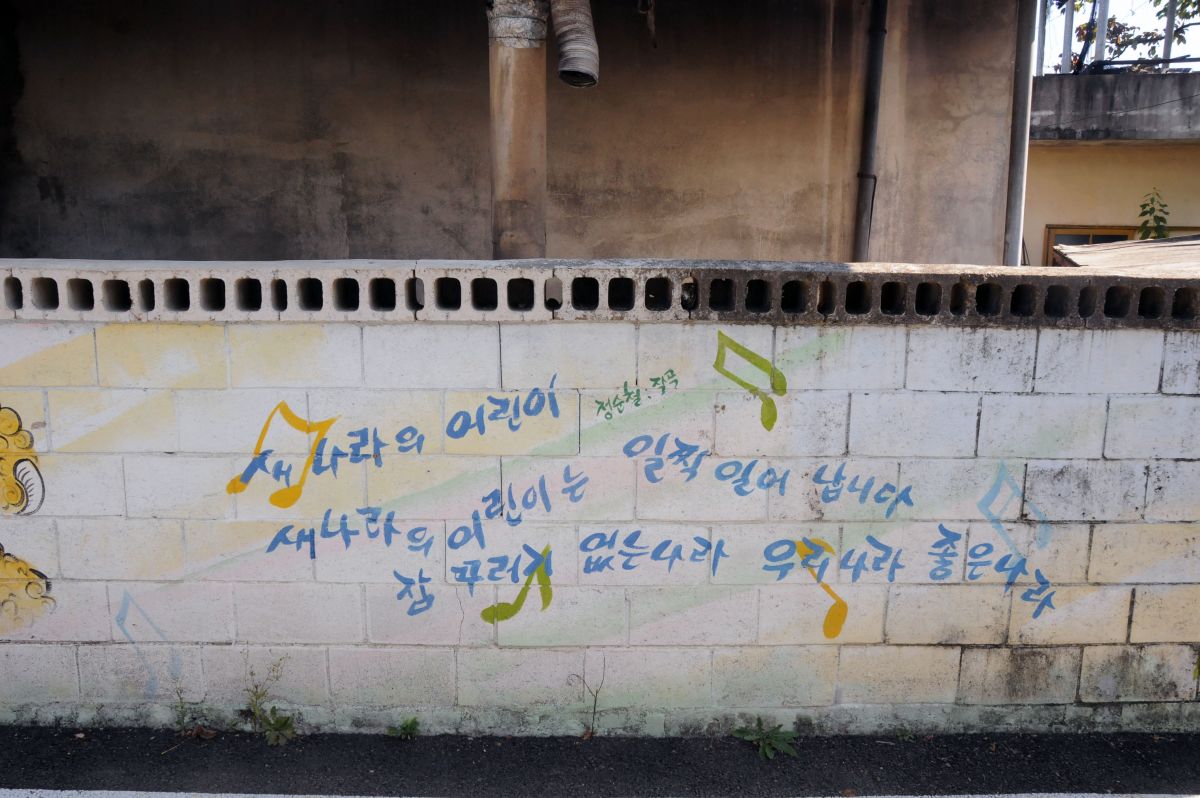 새나라의 어린이
정순철:작곡
새나라의 어린이는 일찍 일어 납니다
잠 꾸러기 없는나라 우리나라 좋은나라